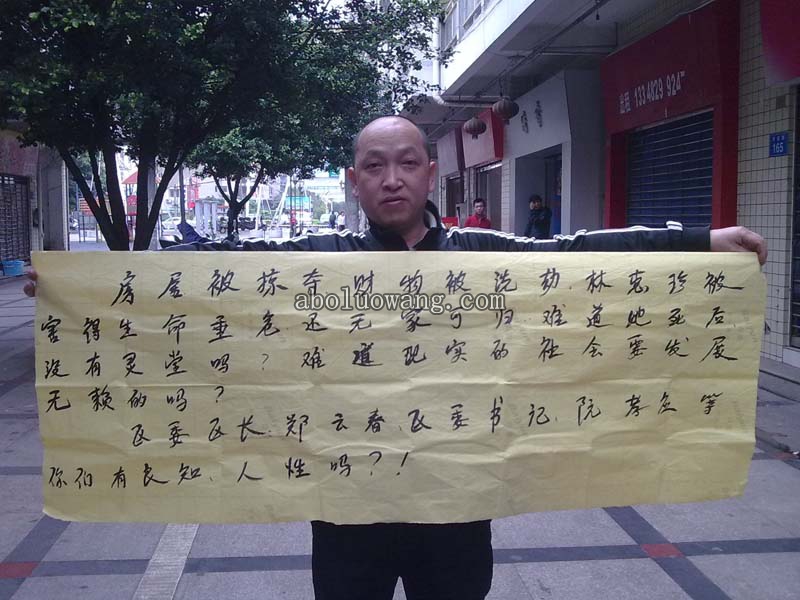 出租 133 4829 924
165
房屋被掠夺财物被洗劫.林惠珍被
害得生命垂危.还无家可归.难道她死后.
没有灵堂吗？难道现实的社会要发展
无赖的吗？
区委区长.郑云春.区委书记.阮孝应等
你们有良知、人性吗？！
aboluowang.com